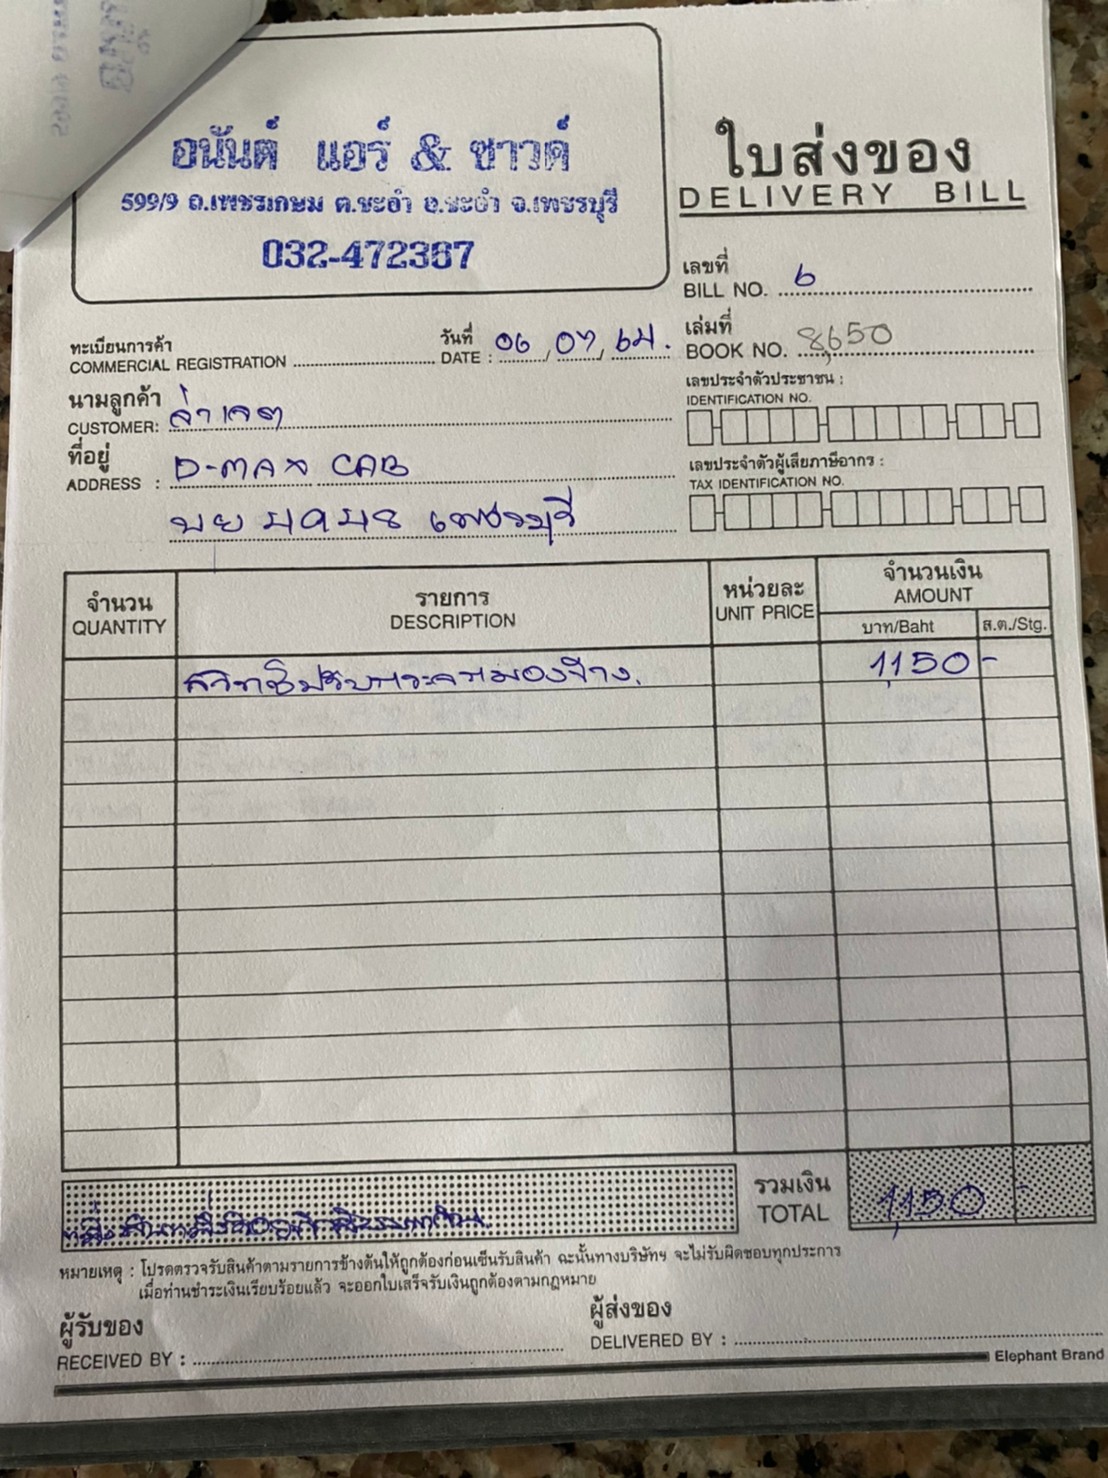 อนันต์ แอร์ & ซาวด์
599/9 ถ.เพชรเกษม ต.ชะอำ อ.ชะอำ จ.เพชรบุรี
032-472367
ใบส่งของ
DELIVERY BILL
เลขที่
BILL NO. ๖
ทะเบียนการค้า
COMMERCIAL REGISTRATION
วันที่
DATE : 06 / 07 / 64.
เล่มที่
BOOK NO. 8,650
นามลูกค้า
CUSTOMER:
เลขประจำตัวประชาชน :
IDENTIFICATION NO.
ที่อยู่
ADDRESS : D-MAX CAB
เพชรบุรี
เลขประจำตัวผู้เสียภาษีอากร :
TAX IDENTIFICATION NO.
จำนวน
QUANTITY
รายการ
DESCRIPTION
หน่วยละ
UNIT PRICE
จำนวนเงิน
AMOUNT
บาท/Baht ส.ต./Stg.
สวิทชิปรับกระจกมองข้าง. 1,150 -
หนึ่งพันหนึ่งร้อยห้าสิบบาทถ้วน
รวมเงิน
TOTAL 1,150 -
หมายเหตุ : โปรดตรวจรับสินค้าตามรายการข้างต้นให้ถูกต้องก่อนเซ็นรับสินค้า ฉะนั้นทางบริษัทฯ จะไม่รับผิดชอบทุกประการ
เมื่อท่านชำระเงินเรียบร้อยแล้ว จะออกใบเสร็จรับเงินถูกต้องตามกฎหมาย
ผู้รับของ
RECEIVED BY :
ผู้ส่งของ
DELIVERED BY :
Elephant Brand